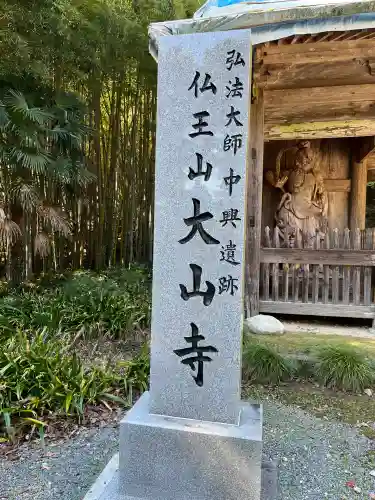 弘法大師中興遺跡
仏王山大山寺